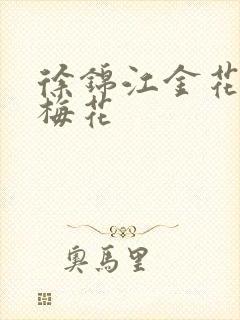 徐錦江金花
梅花
奧馬里